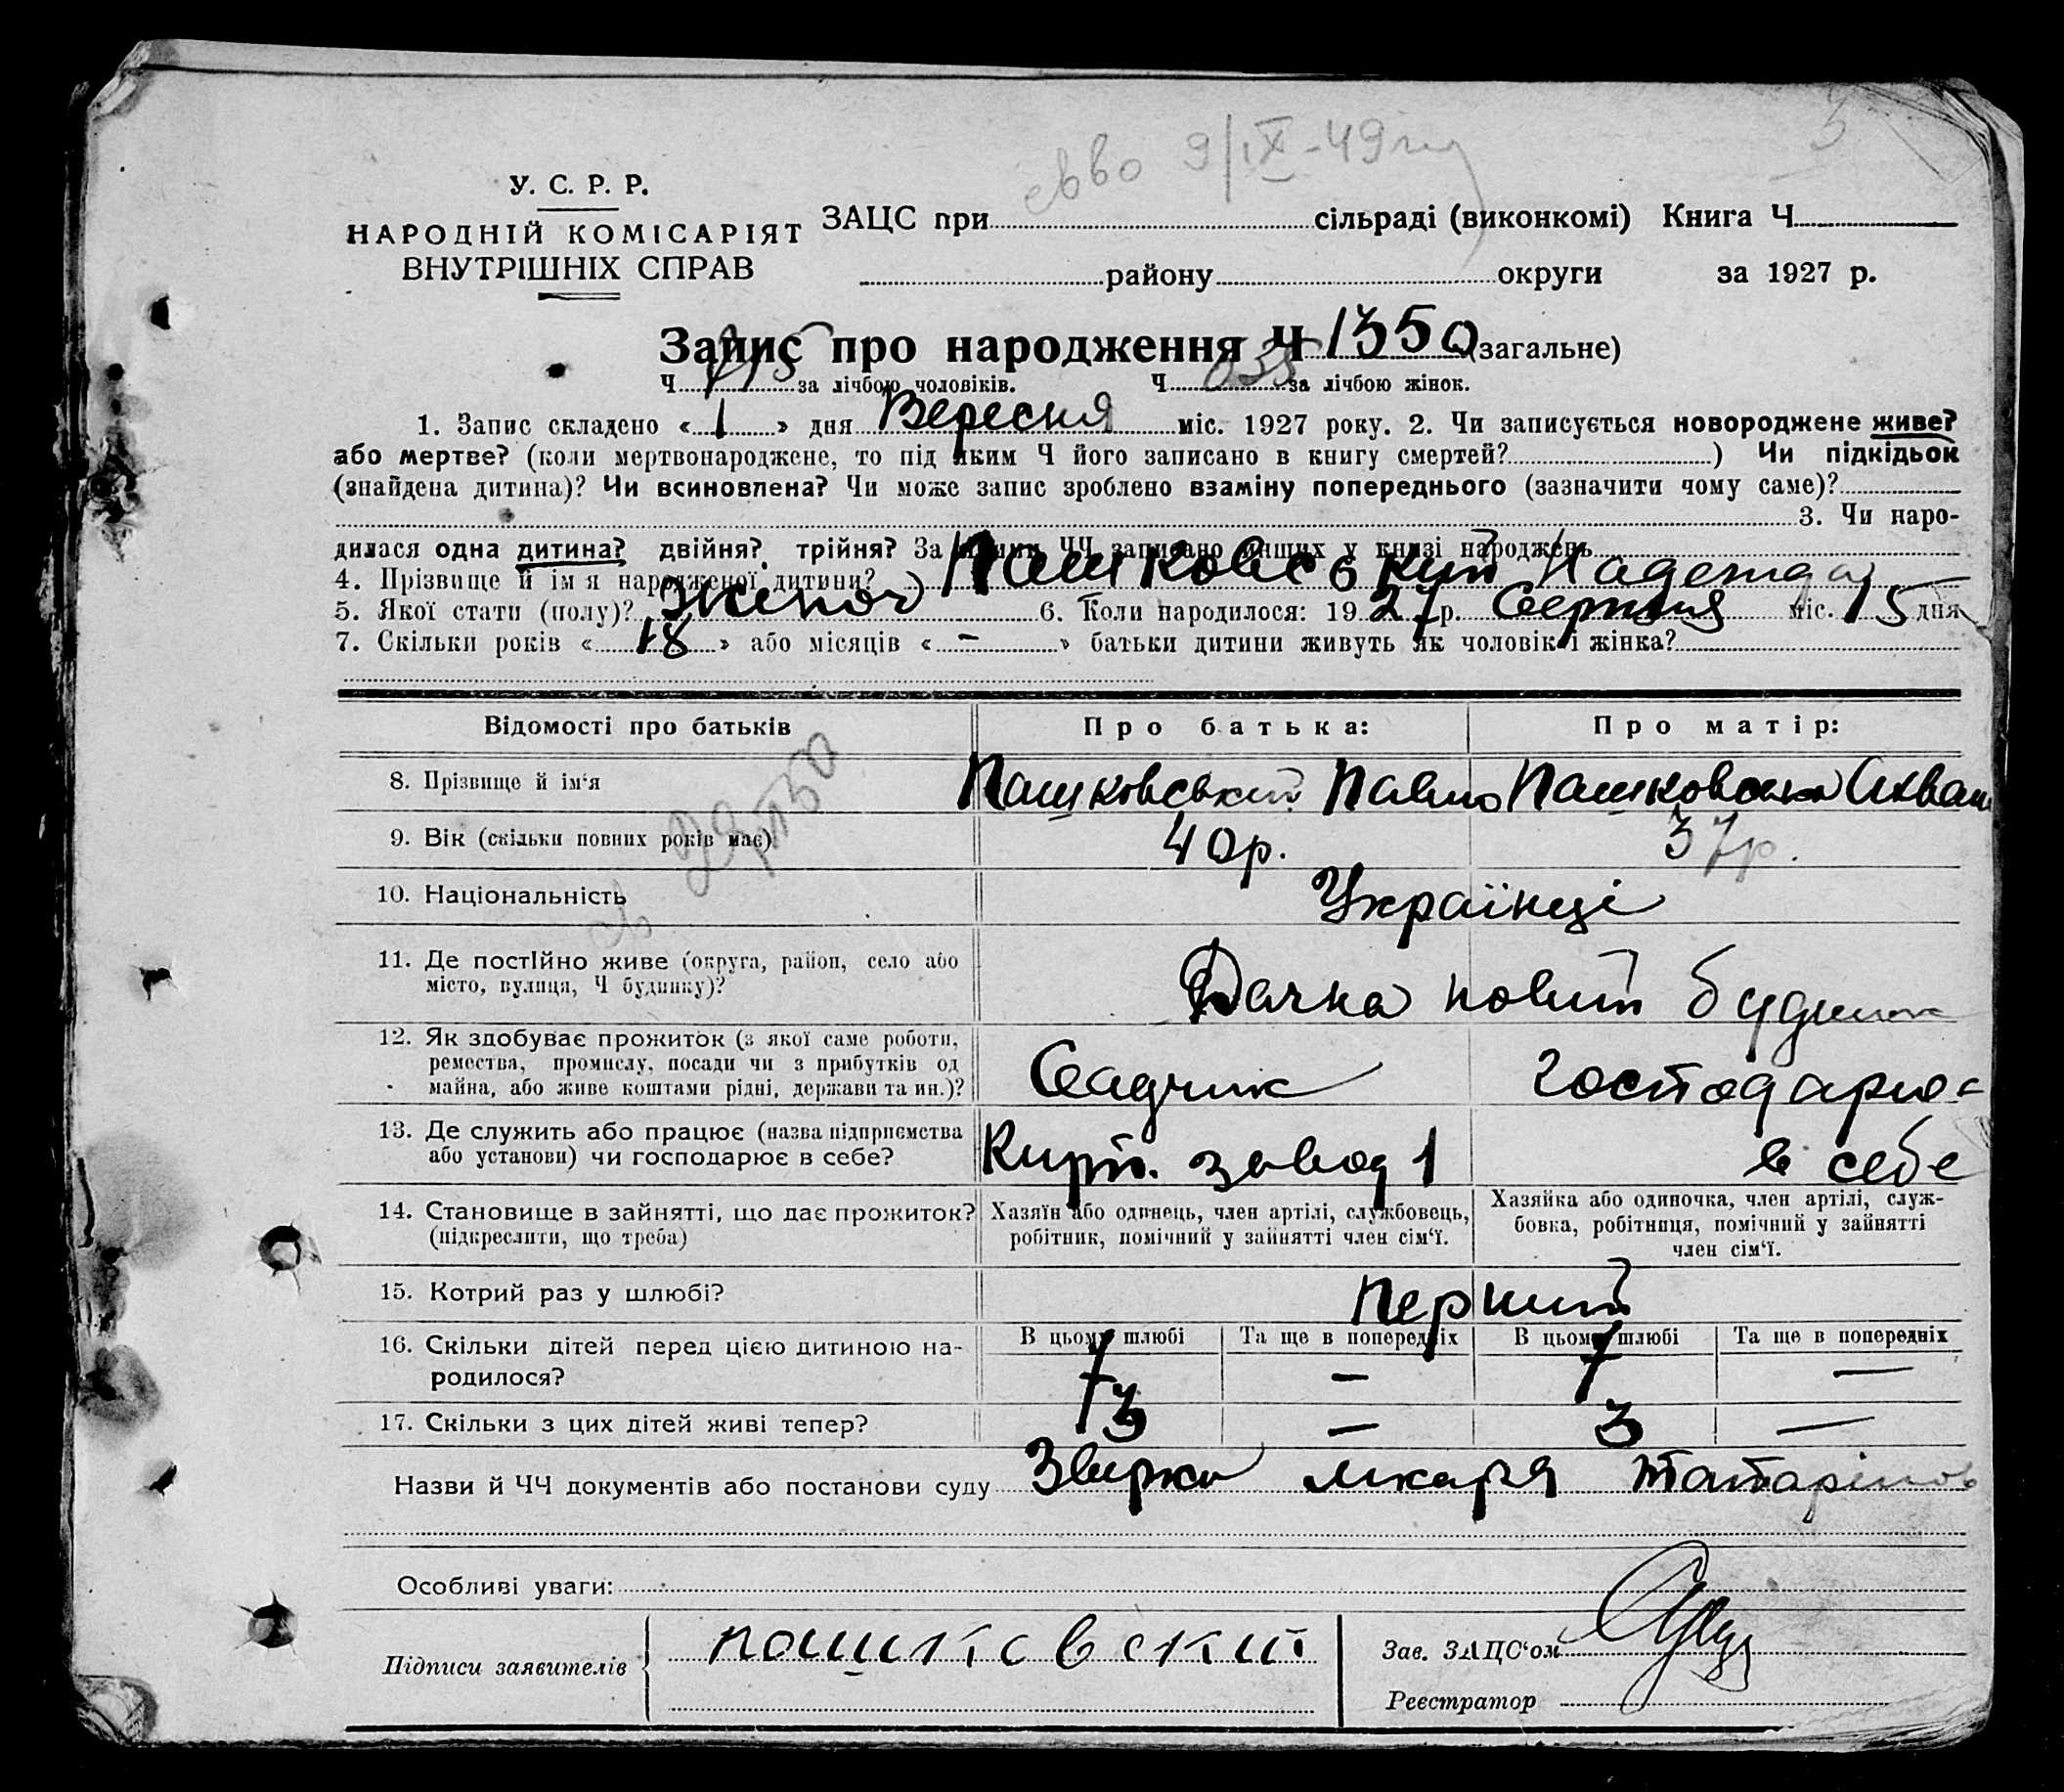 9/IX-49
У. С. Р. Р.
НАРОДНІЙ КОМІСАРІЯТ
ВНУТРІШНІХ СПРАВ
ЗАЦС при сільраді (виконкомі) Книга Ч
району округи за 1927 р.
Запис про народження Ч 1350 (загальне)
Ч за лічбою чоловіків. Ч 635 за лічбою жінок.
1. Запис складено « 1 » дня Вересня міс. 1927 року. 2. Чи записується новороджене живе?
або мертве? (коли мертвонароджене, то під яким Ч його записано в книгу смертей? ) Чи підкідьок
(знайдена дитина)? Чи всиновлена? Чи може запис зроблено взаміну попереднього (зазначити чому саме)?
3. Чи наро-
дилася одна дитина? двійня? трійня? За якими ЧЧ записано инших у книзі народжень
4. Прізвище й ім'я народженої дитини? Пашковський Надежда
5. Якої стати (полу)? Жіноч 6. Коли народилося: 1927 р. Серпня міс. 15 дня
7. Скільки років « 18 » або місяців « - » батьки дитини живуть як чоловік і жінка?
Відомості про батьків Про батька: Про матір:
8. Прізвище й ім'я Пашковський Павло Пашковська
9. Вік (скільки повних років має) 40р. 37р.
10. Національність Українці
11. Де постійно живе (округа, район, село або
місто, вулиця, Ч будинку)? Дачна новий будинок
12. Як здобуває прожиток (з якої саме роботи,
ремества, промислу, посади чи з прибутків од
майна, або живе коштами рідні, держави та ин.)? Садчик господарює
13. Де служить або працює (назва підприємства
або установи) чи господарює в себе? Кирп. завод 1 в себе
14. Становище в зайнятті, що дає прожиток?
(підкреслити, що треба)
Хазяїн або одинець, член артілі, службовець,
робітник, помічний у зайнятті член сім'ї.
Хазяйка або одиночка, член артілі, служ-
бовка, робітниця, помічний у зайнятті
член сім'ї.
15. Котрий раз у шлюбі? Перший
В цьому шлюбі Та ще в попередніх В цьому шлюбі Та ще в попередніх
16. Скільки дітей перед цією дитиною на-
родилося? 7 - 7 -
17. Скільки з цих дітей живі тепер? 3 - 3 -
Назви й ЧЧ документів або постанови суду лікаря
Особливі уваги:
Підписи заявителів пошковский
Зав. ЗАЦС'ом
Реєстратор